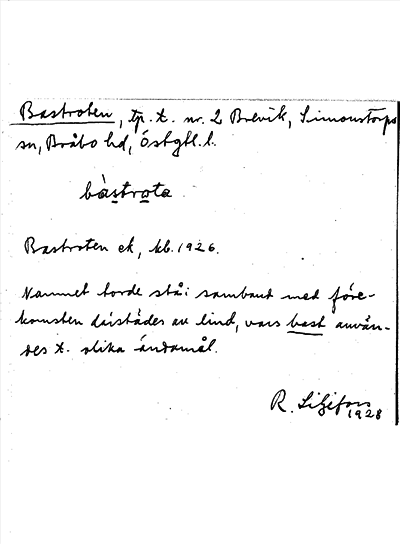 Bastroten, tp. t. nr. 2 Brevik, Simonstorps
sn, Bråbo hd, Östgtl. l.
bàstrota
Bastroten ek, kb. 1926.
Namnet torde stå i samband med före-
komsten därstädes av lind, vars bast använ-
des t. olika ändamål.
R. Liljefors
1928